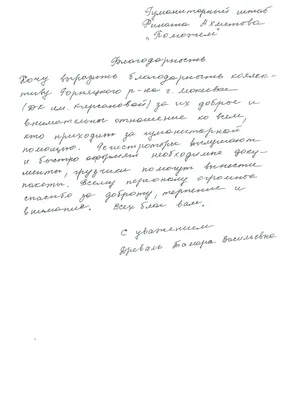 Гуманитарный штаб
Рината Ахметова
„Поможем"
Благодарность
Хочу выразить благодарность коллек-
тиву Горняцкого р-на г. Макеевки
(ДК им. Кирсановой) за их доброе и
внимательное отношение ко всем,
кто приходит за гуманитарной
помощью. Регистраторы выслушают
и быстро оформят необходимые доку-
менты, грузчики помогут вынести
пакеты. Всему персоналу огромное
спасибо за доброту, терпение и
внимание. Всех благ вам.
С уважением
Тамара Васильевна